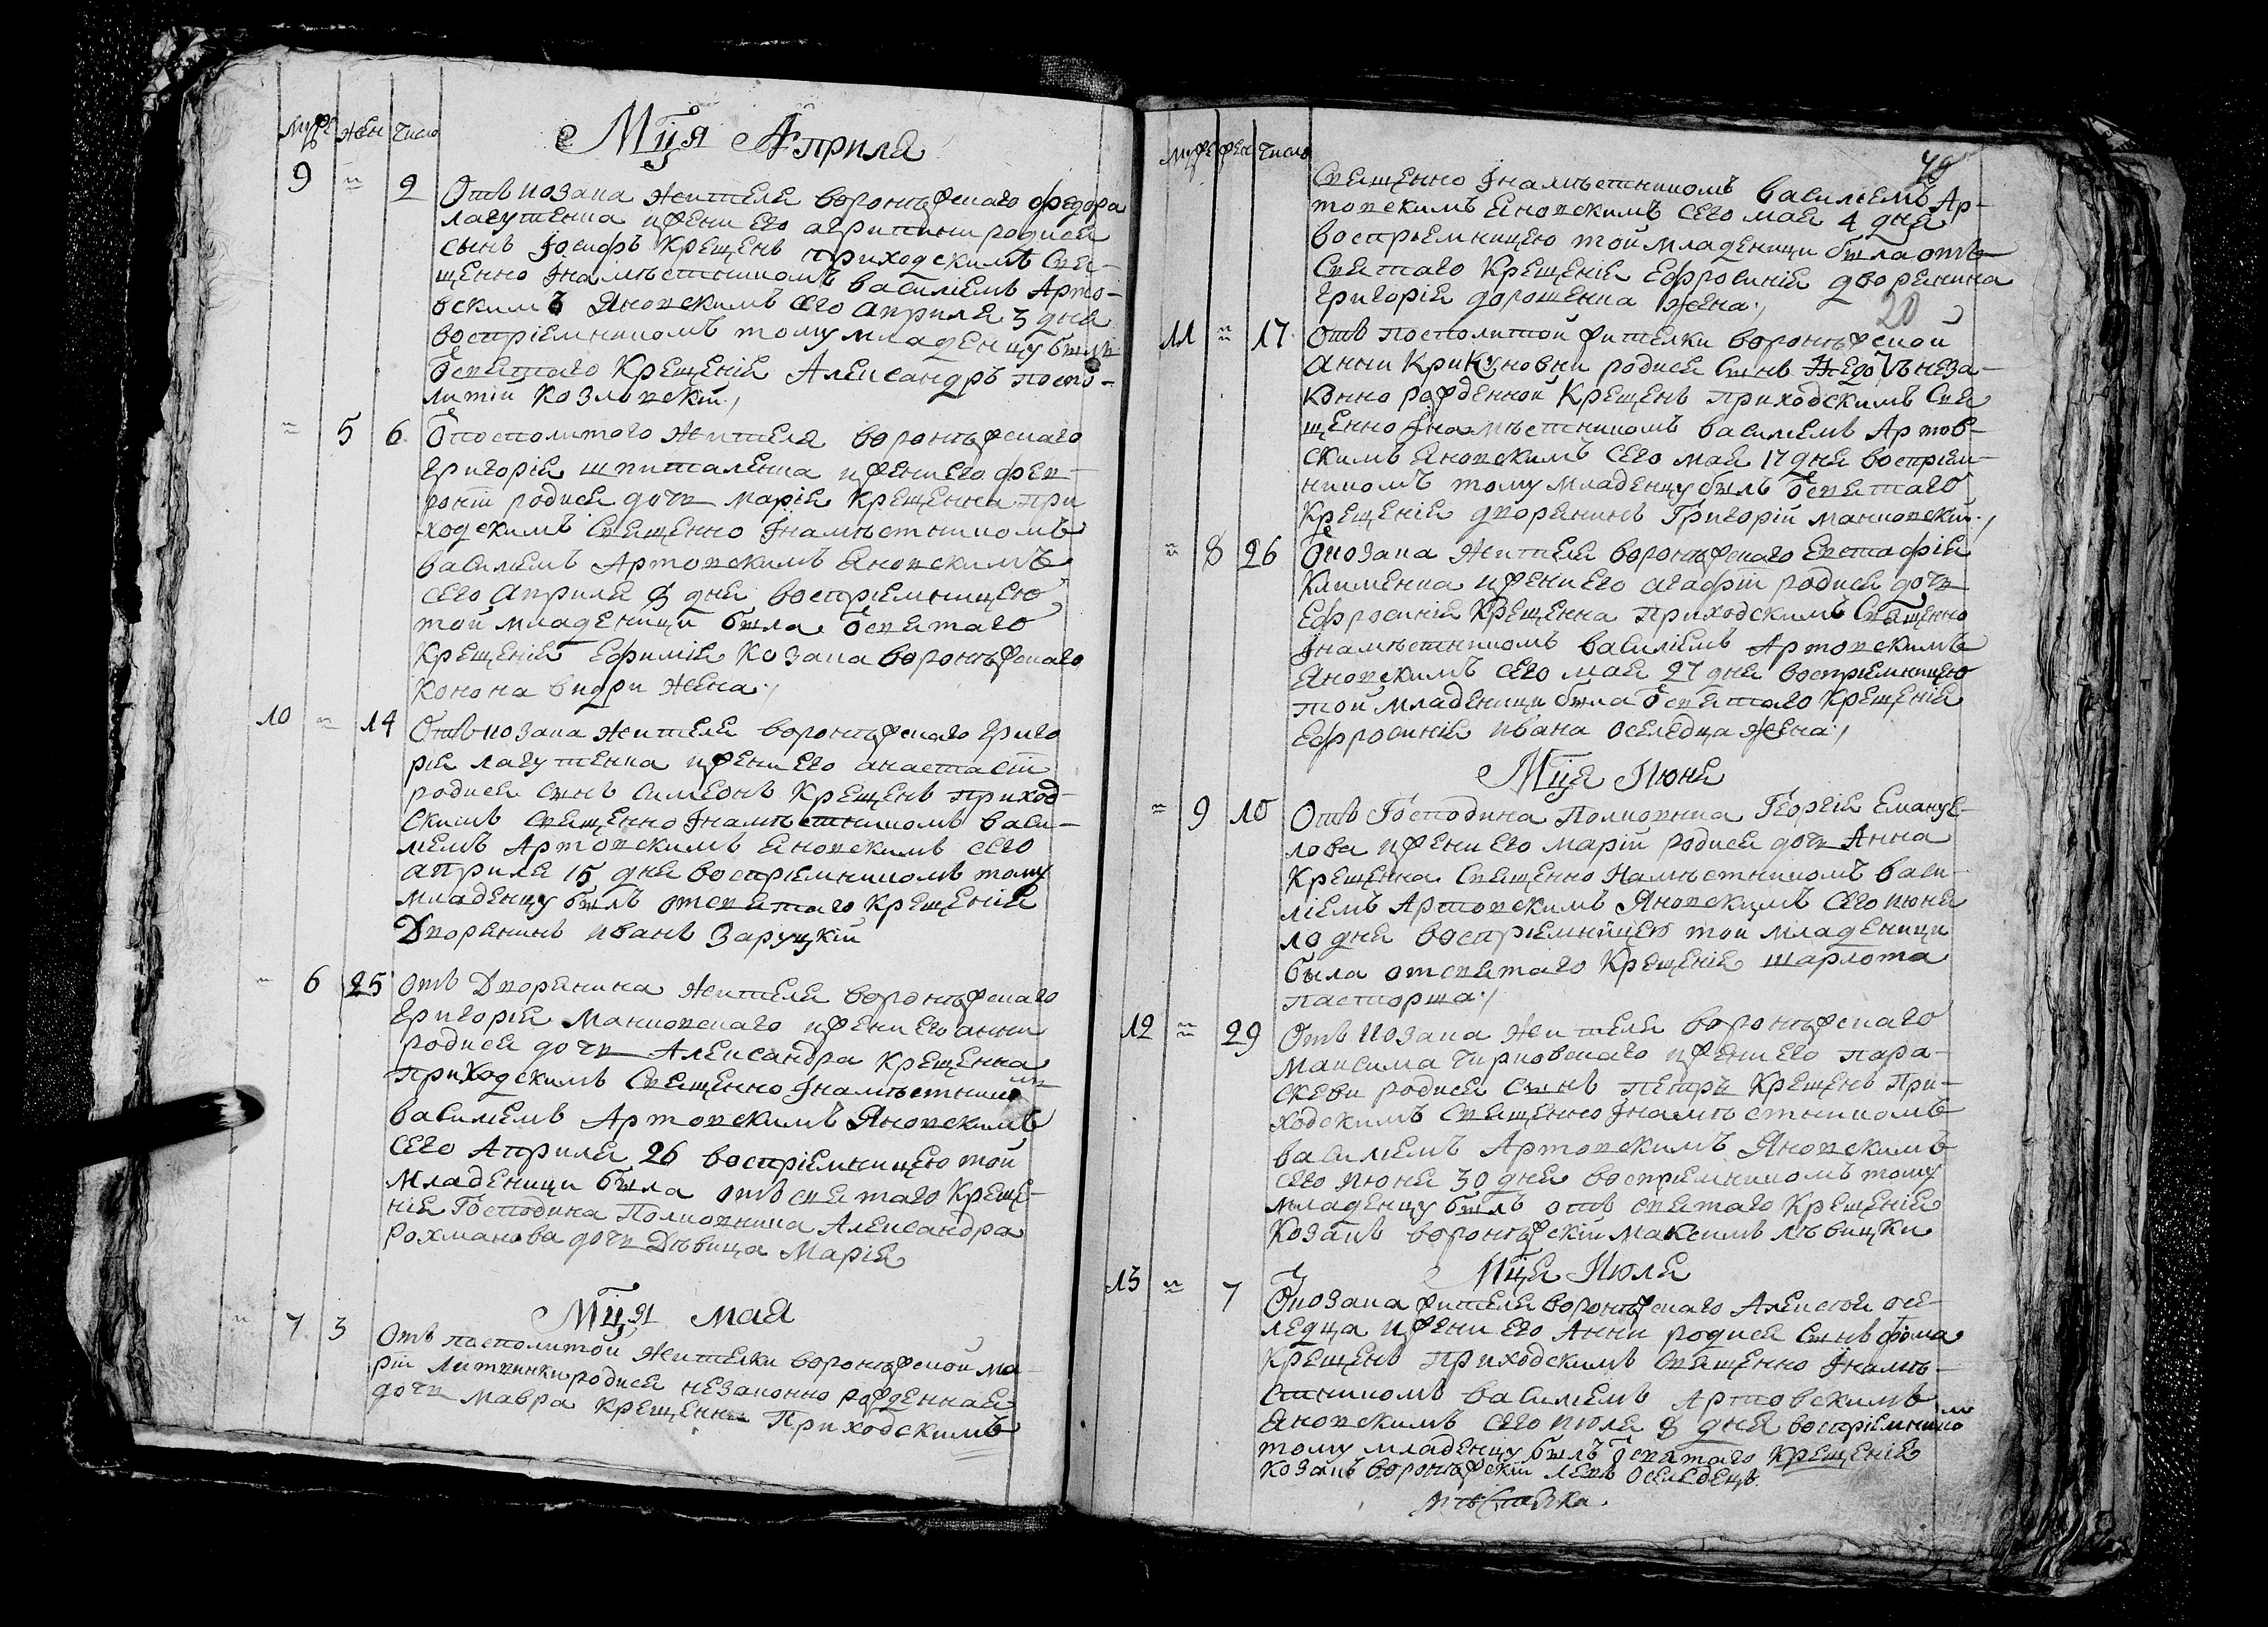 Муже Жен Число
Мца Априля
9 " 2 Отъ козака жителя воронѣжскаго федора
лагутенка и жени его агрипини родися
сынъ Іосифъ крещенъ приходскимъ Свя-
щенно Iнамѣстникомъ василіемъ Арто-
вскимъ Яновскимъ сего априля 3 дня
воспріемникомъ тому младенцу былъ
от святаго Крещенія Александръ поспо-
литій Козловскій
" 5 6 От посполитого жителя воронѣжскаго
григорія шпиталенка и жени его фев-
роніи родися дочь марія Крещенна при
ходскимъ Священно Iнамѣстникомъ
василіемъ Артовскимъ Яновскимъ
сего априля 8 дня воспріемницею
той младеници была от святаго
Крещенія Ефимія козака воронѣжскаго
Конона видри жена
10 " 14 Отъ козака жителя воронѣжскаго григо
рія лагутенка и жени его анастасіи
родися Сынъ Симеонъ Крещенъ приход
скимъ священно Iнамѣстникомъ васи-
ліемъ Артовскимъ Яновскимъ сего
априля 15 дня воспріемникомъ тому
младенцу былъ от святаго крещенія
Дворянинъ иванъ Заруцкій
" 6 25 отъ Дворянина жителя воронѣжскаго
григорія Манковскаго и жени его анни
родися дочь Александра Крещенна
приходскимъ Священно Iнамѣстником
василіемъ Артовскимъ Яновскимъ
сего Априля 26 воспріемницею той
младеници была отъ святаго Креще-
нія Господина Полковника Александра
Рохманова дочь Дѣвица Марія
Мца мая
" 7 3 Отъ посполитой жителки воронѣжской ма-
ріи Литвинки родися незаконно рожденная
дочь мавра крещенна Приходскимъ
Муже Жен Число
40
Священно Iнамѣстникомъ василіемъ Ар-
товскимъ Яновскимъ сего мая 4 дня
воспріемницею той младеници была отъ
Святаго Крещенія Ефросинія дворянина
григорія дорошенка жена
20
11 " 17 Отъ посполитой жителки воронѣжской
анни Крикуновни родися Сынъ Федоръ неза-
конно рожденной Крещенъ приходскимъ Свя
щенно Iнамѣстникомъ василіемъ Артов-
скимъ Яновскимъ сего мая 17 дня воспріем-
никомъ тому младенцу былъ от святаго
Крещенія дворянинъ Григорій манковскій
" 8 26 От козака жителя воронѣжскаго Евстафія
Клименка и жени его агафіи родися дочь
Ефросинія Крещенна Приходскимъ Священно
Iнамѣстникомъ василіемъ Артовскимъ
Яновскимъ сего мая 27 дня воспріемницею
той младеници была от святаго Крещенія
Ефросинія ивана оселедца жена
Мца Июня
" 9 10 Отъ Господина Полковника Георгія Емануе-
лова и жени его маріи родися дочь Анна
Крещенна Священно Намѣстникомъ васи-
ліемъ Артовскимъ Яновскимъ Сего июня
10 дня воспріемницею той младеници
была от святаго Крещенія шарлота
пасторша
12 " 29 Отъ козака жителя воронѣжскаго
Максима Чирковскаго и жени его пара-
скеви родися сынъ петръ Крещенъ При-
ходскимъ Священно Iнамѣстникомъ
василіемъ Артовскимъ Яновскимъ
сего июня 30 дня воспріемникомъ тому
младенцу былъ отъ святаго Крещенія
Козакъ воронѣжскій Максимъ лѣвицки
Мца Июля
13 " 7 От козака жителя воронѣжскаго Алексея осе-
ледца и жени его Анни родися Сынъ фома
Крещенъ Приходскимъ Священно Iнамѣ-
стникомъ василіемъ Артовскимъ
Яновскимъ сего июля 8 дня воспріемником
тому младенцу былъ от святаго крещенія
козакъ воронѣжскій левъ оселедецъ